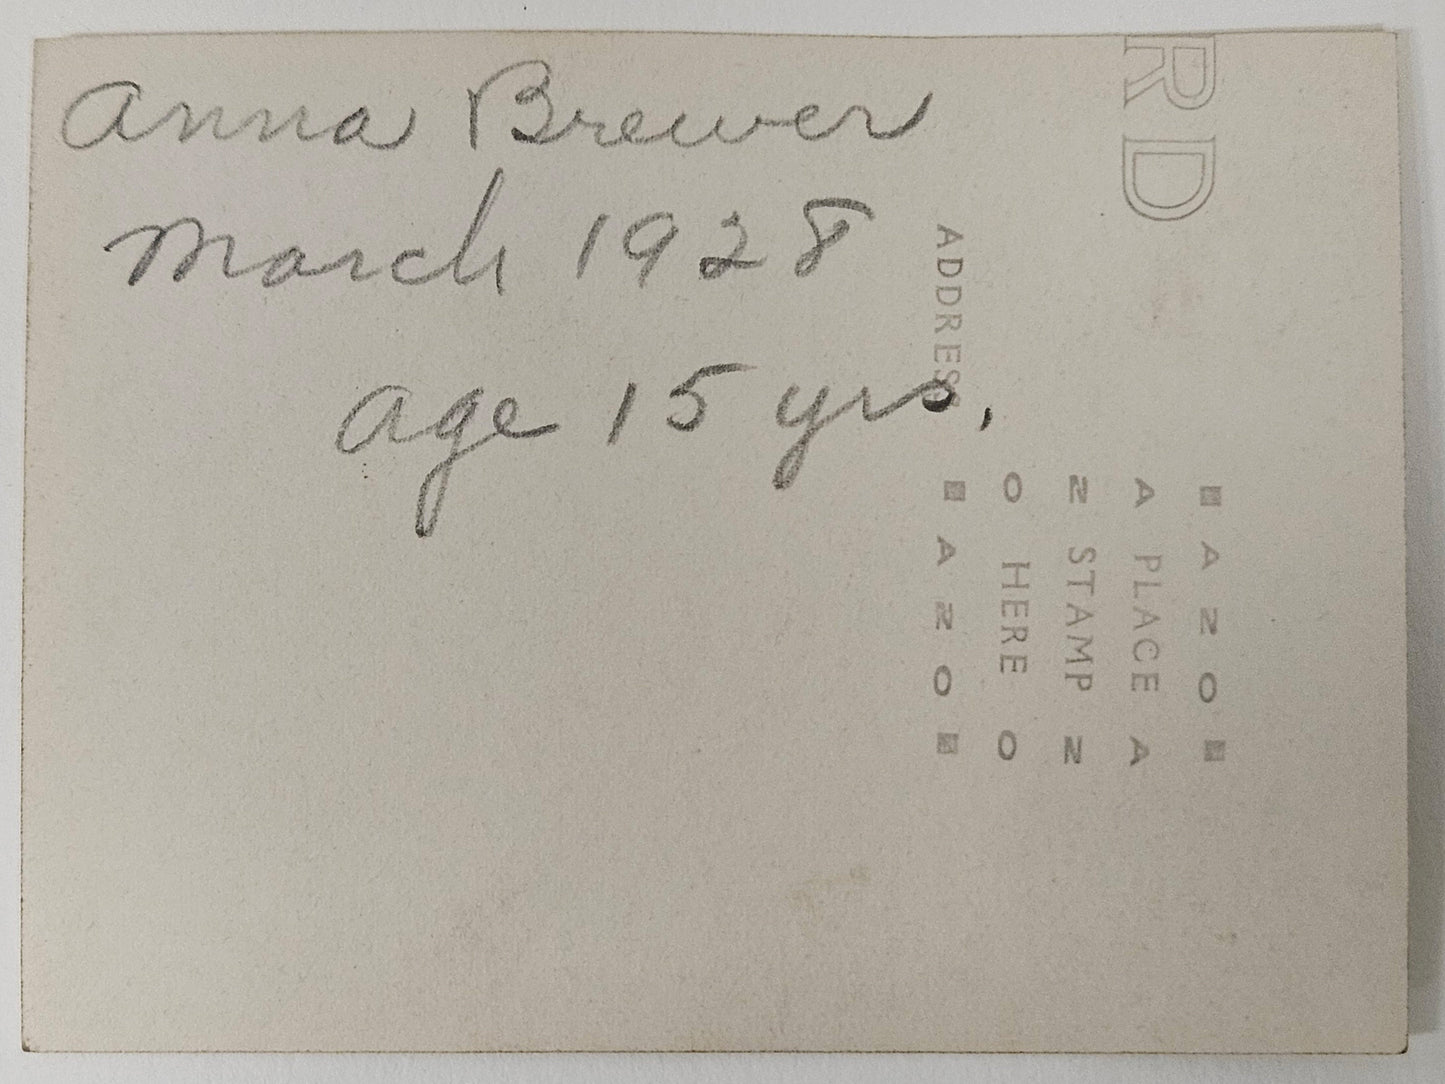 Anna Brewer
March 1928
age 15 yrs.
RD
ADDRESS
■ AZO ■
A PLACE A
Z STAMP Z
O HERE O
■ AZO ■